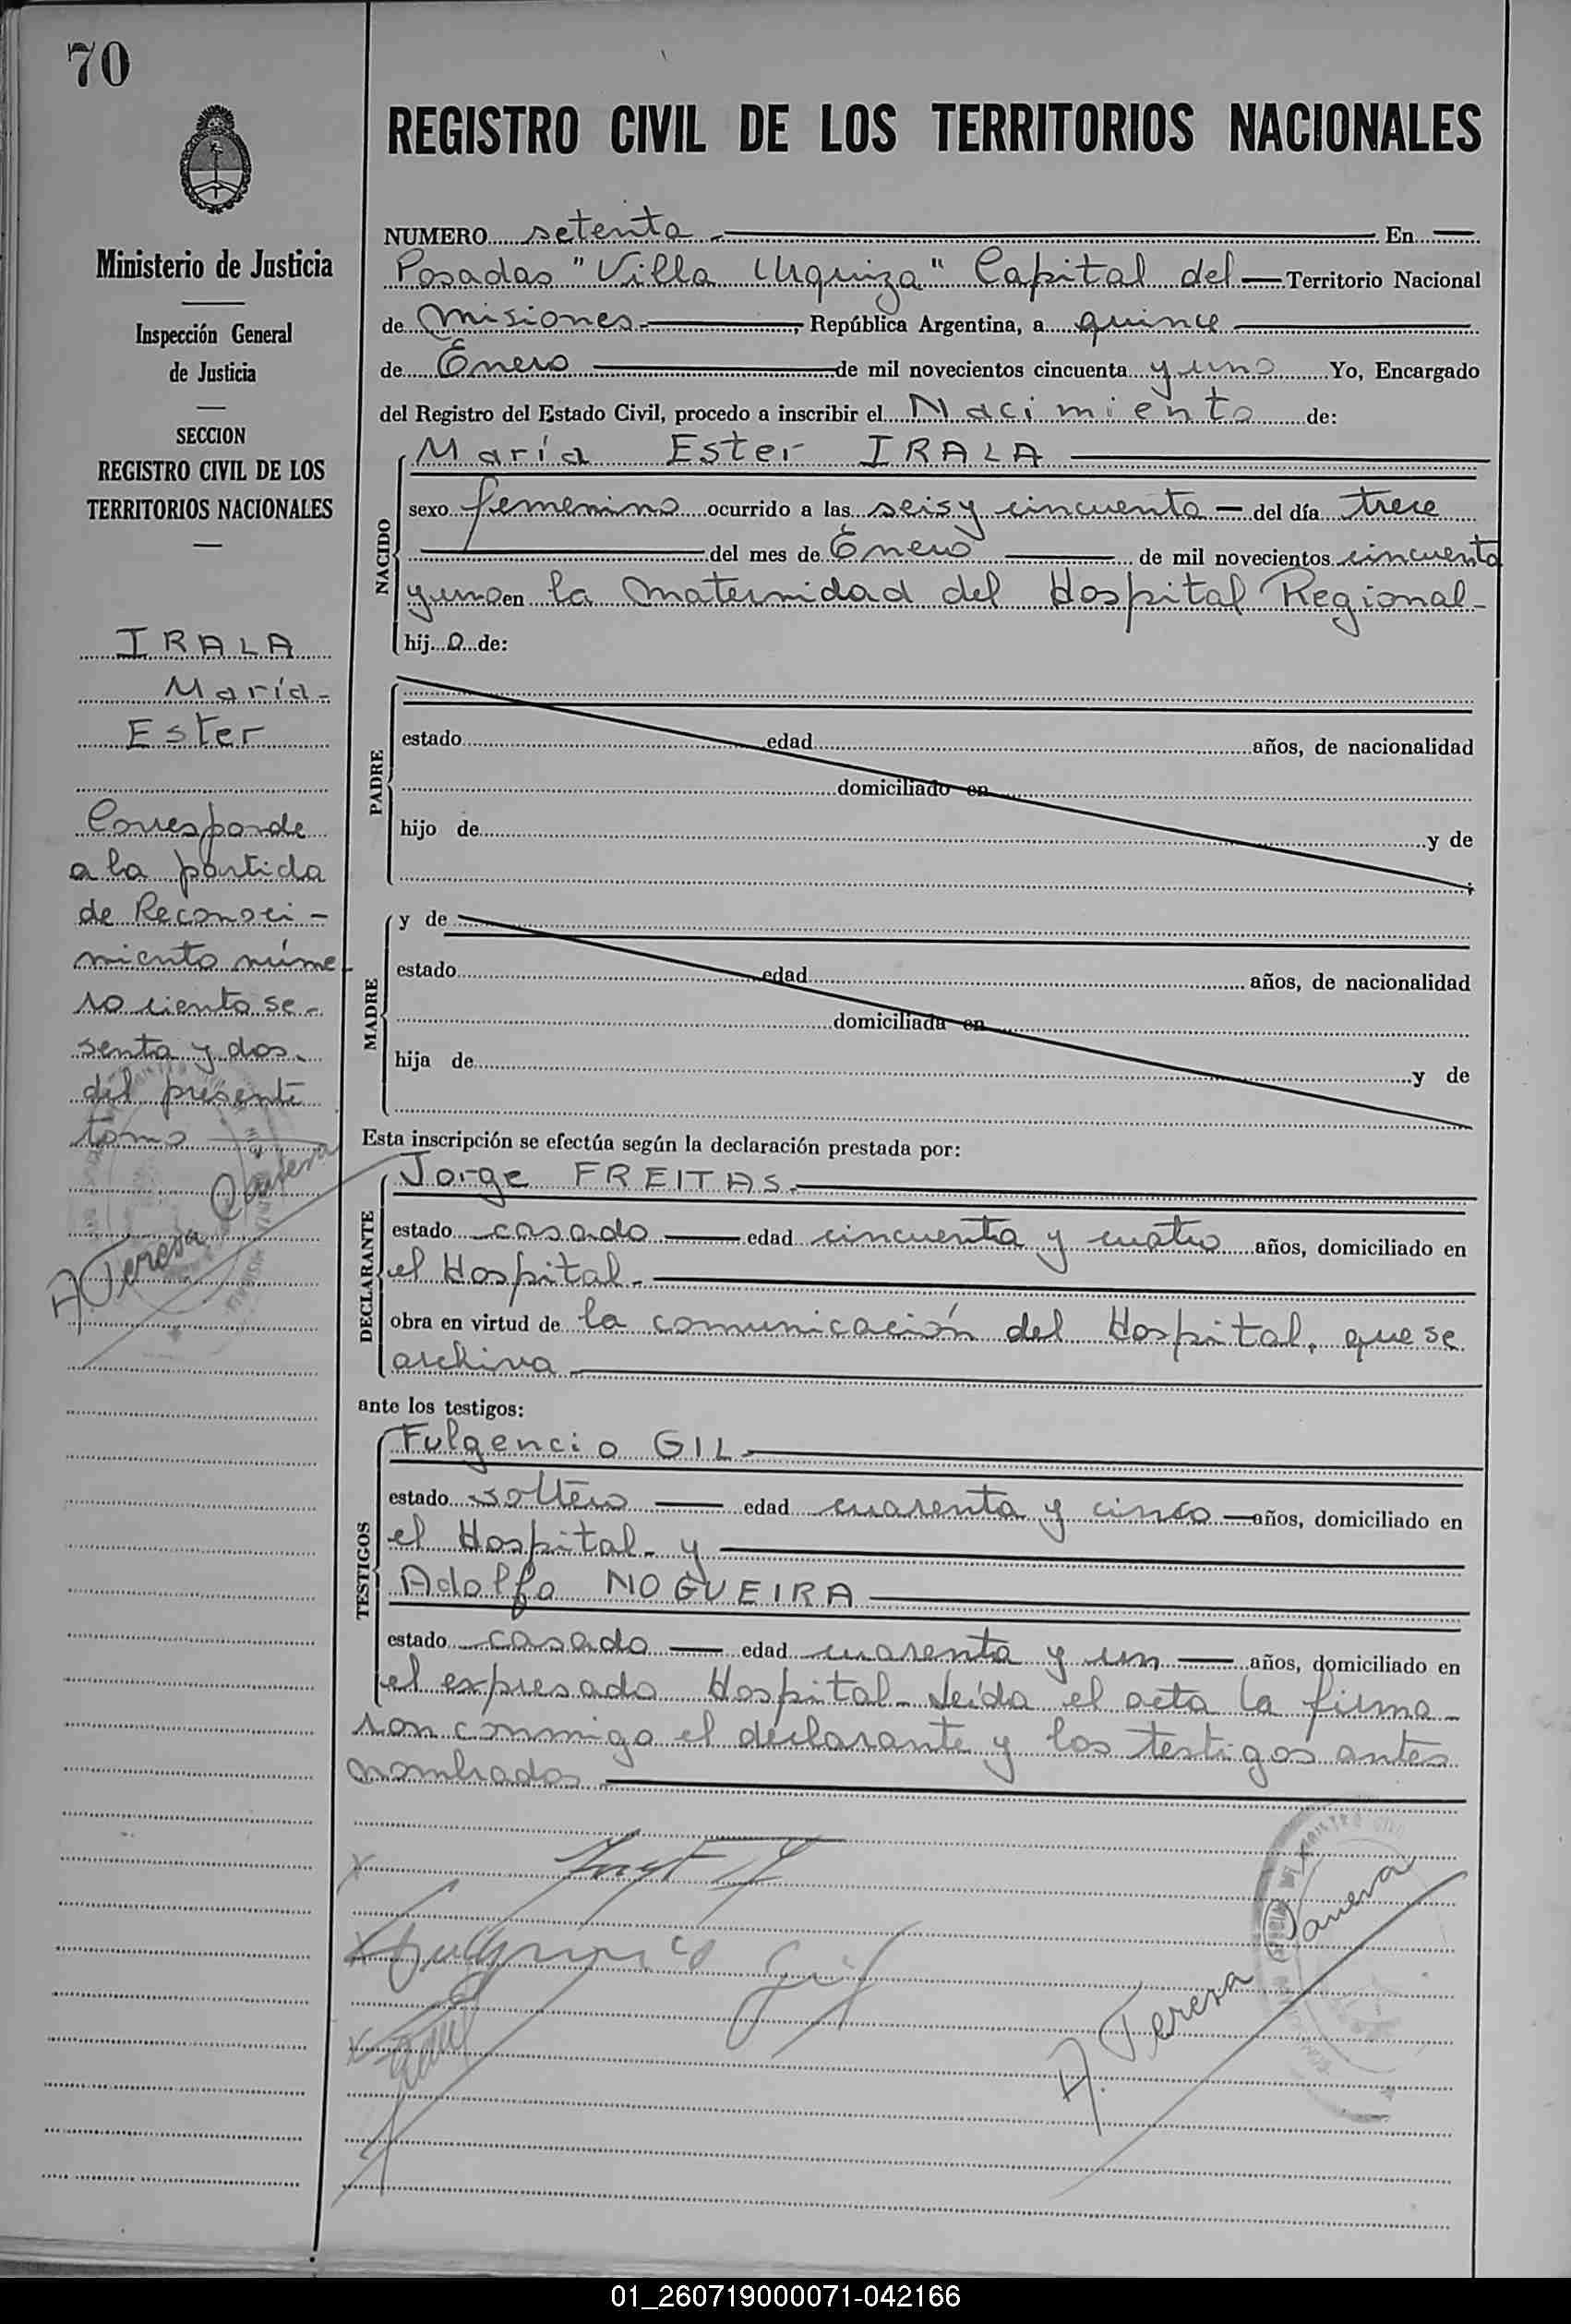 70
REGISTRO CIVIL DE LOS TERRITORIOS NACIONALES
Ministerio de Justicia
Inspección General
de Justicia
SECCION
REGISTRO CIVIL DE LOS
TERRITORIOS NACIONALES
IRALA
María-
Ester
Corresponde
a la partida
de Reconoci-
miento núme-
ro ciento se-
senta y dos
del presente
tomo
A. Teresa Canteva
NUMERO setenta.- En
Posadas "Villa Urquiza" Capital del Territorio Nacional
de Misiones.-, República Argentina, a quince
de Enero de mil novecientos cincuenta y uno Yo, Encargado
del Registro del Estado Civil, procedo a inscribir el Nacimiento de:
NACIDO
María Ester IRALA
sexo femenino ocurrido a las seis y cincuenta del día trece
del mes de Enero de mil novecientos cincuenta
y uno en la maternidad del Hospital Regional-
hij a de:
PADRE
estado edad años, de nacionalidad
domiciliado en
hijo de y de
;
MADRE
y de
estado edad años, de nacionalidad
domiciliada en
hija de y de
Esta inscripción se efectúa según la declaración prestada por:
DECLARANTE
Jorge FREITAS.
estado casado edad cincuenta y cuatro años, domiciliado en
el Hospital.
obra en virtud de la comunicación del Hospital, que se
archiva
ante los testigos:
TESTIGOS
Fulgencio GIL
estado soltero edad cuarenta y cinco años, domiciliado en
el Hospital- y
Adolfo NOGUEIRA
estado casado edad cuarenta y un años, domiciliado en
el expresado Hospital- Leída el acta la firma-
ron conmigo el declarante y los testigos antes
nombrados
Fulgencio Gil
A. Teresa
01_260719000071-042166